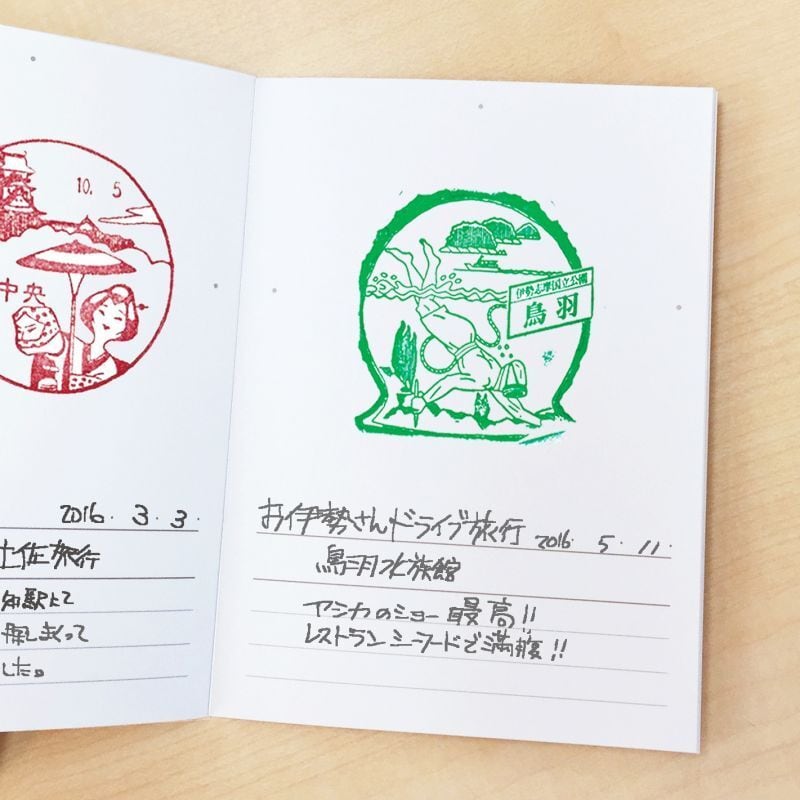 10.5
中央
2016.3.3.
土佐旅行
知駅にて
探しまくって
した。
伊勢志摩国立公園
鳥羽
お伊勢さんドライブ旅行 2016.5.11.
鳥羽水族館
アシカのショー最高!!
レストランシーラードで満腹!!